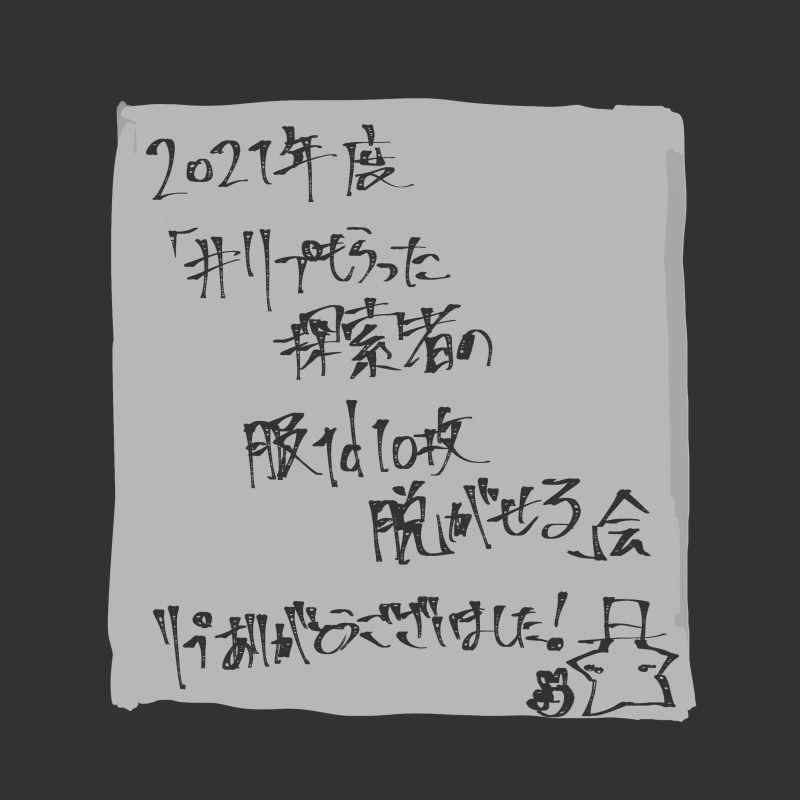 2021年度
「#リプもらった
探索者の
服1d10枚
脱がせる」会
リプありがとうございました!